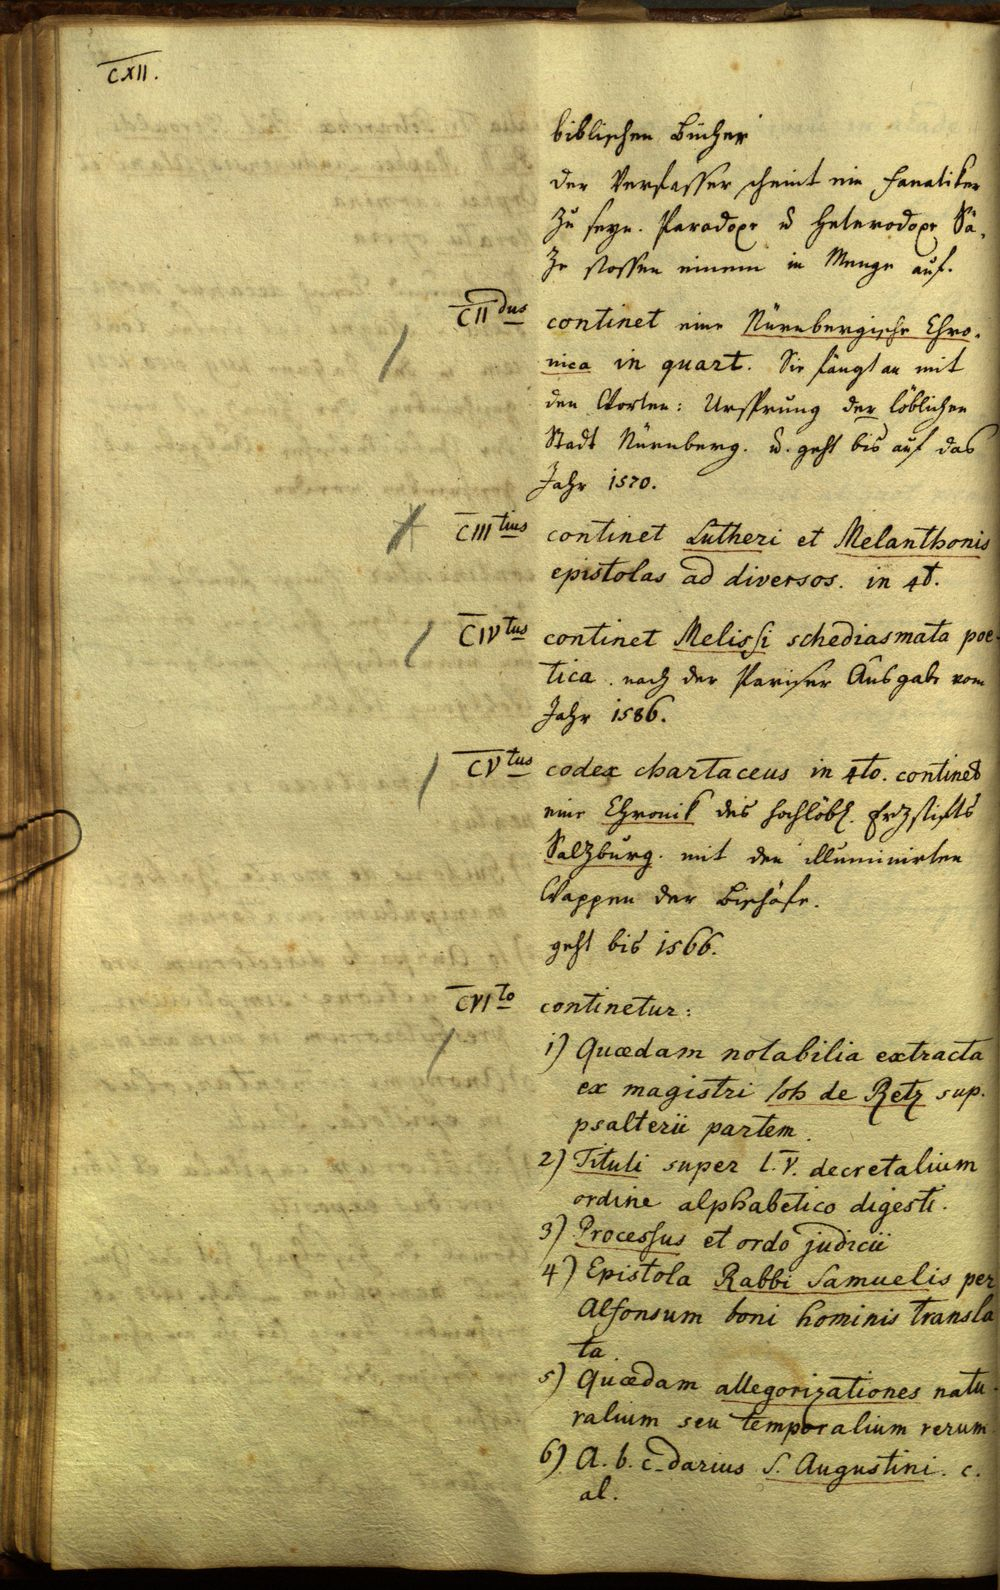 CXII.
biblischen Bücher
der Verfasser scheint ein Fanatiker
zu seyn. Paradoxe u Heterodoxe Sä-
ze stossen einem in Menge auf.
CII dus continet eine Nürnbergische Chro-
nica in quart. Sie fängt an mit
den Worten: Ursprung der löblichen
Stadt Nürnberg. u. geht bis auf das
Jahr 1570.
CIII tius continet Lutheri et Melanthonis
epistolas ad diversos. in 4t.
CIV tus continet Melissi schediasmata poe-
tica. nach der Pariser Ausgabe vom
Jahr 1586.
CV tus codex chartaceus in 4to. continet
eine Chronik des hochlöbl. Erzstifts
Salzburg. mit den illuminirten
Wappen der Bischöfe.
geht bis 1566.
CVI to continetur:
1) Quædam notabilia extracta
ex magistri Joh de Retz sup.
psalterii partem.
2) Tituli super l. V. decretalium
ordine alphabetico digesti.
3) Processus et ordo judicii
4) Epistola Rabbi Samuelis per
Alfonsum boni hominis transla
ta.
5) Quædam allegorizationes natu-
ralium seu temporalium rerum.
6) A. b. c-darius S. Augustini. c.
al.